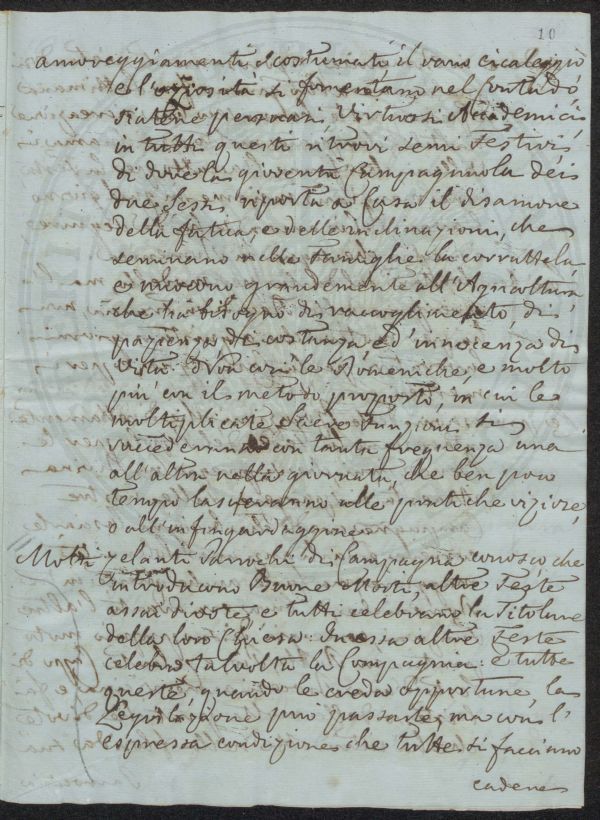 10
amoreggiamenti scostumati il vano cicaleggio
e l'oziosità si fomentano nel Contado,
siatene persuasi Virtuosi Accademici
in tutti questi ritrovi semi Festivi
di dove la gioventù Campagnuola dei
due sessi riporta a Casa il disamore
della fatica, e delle inclinazioni, che
seminano nelle Famiglie la corruttela
e nuocono grandemente all'Agricoltura,
che ha bisogno di raccoglimento, di
pazienza di costanza e d'innocenza di
vita. Non così le Domeniche, e molto
più con il metodo proposto, in cui le
moltiplicate Sacre Funzioni si
succederanno con tanta frequenza una
all'altra nella giornata, che ben poco
tempo lasceranno alle pratiche viziose,
o all'infingardaggine.
Molti zelanti Parochi di Campagna conosco, che
introducono Buone Morti, altre Feste
assai divote, e tutti celebrano la Titolare
della loro Chiesa: In essa altre Feste
celebra talvolta la Compagnia: e tutte
queste quando le creda opportune, la
Legislazione può passarle, ma con l'
espressa condizione che tutte si facciano
cadere